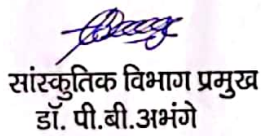 सांस्कृतिक विभाग प्रमुख
डॉ. पी.बी.अभंगे